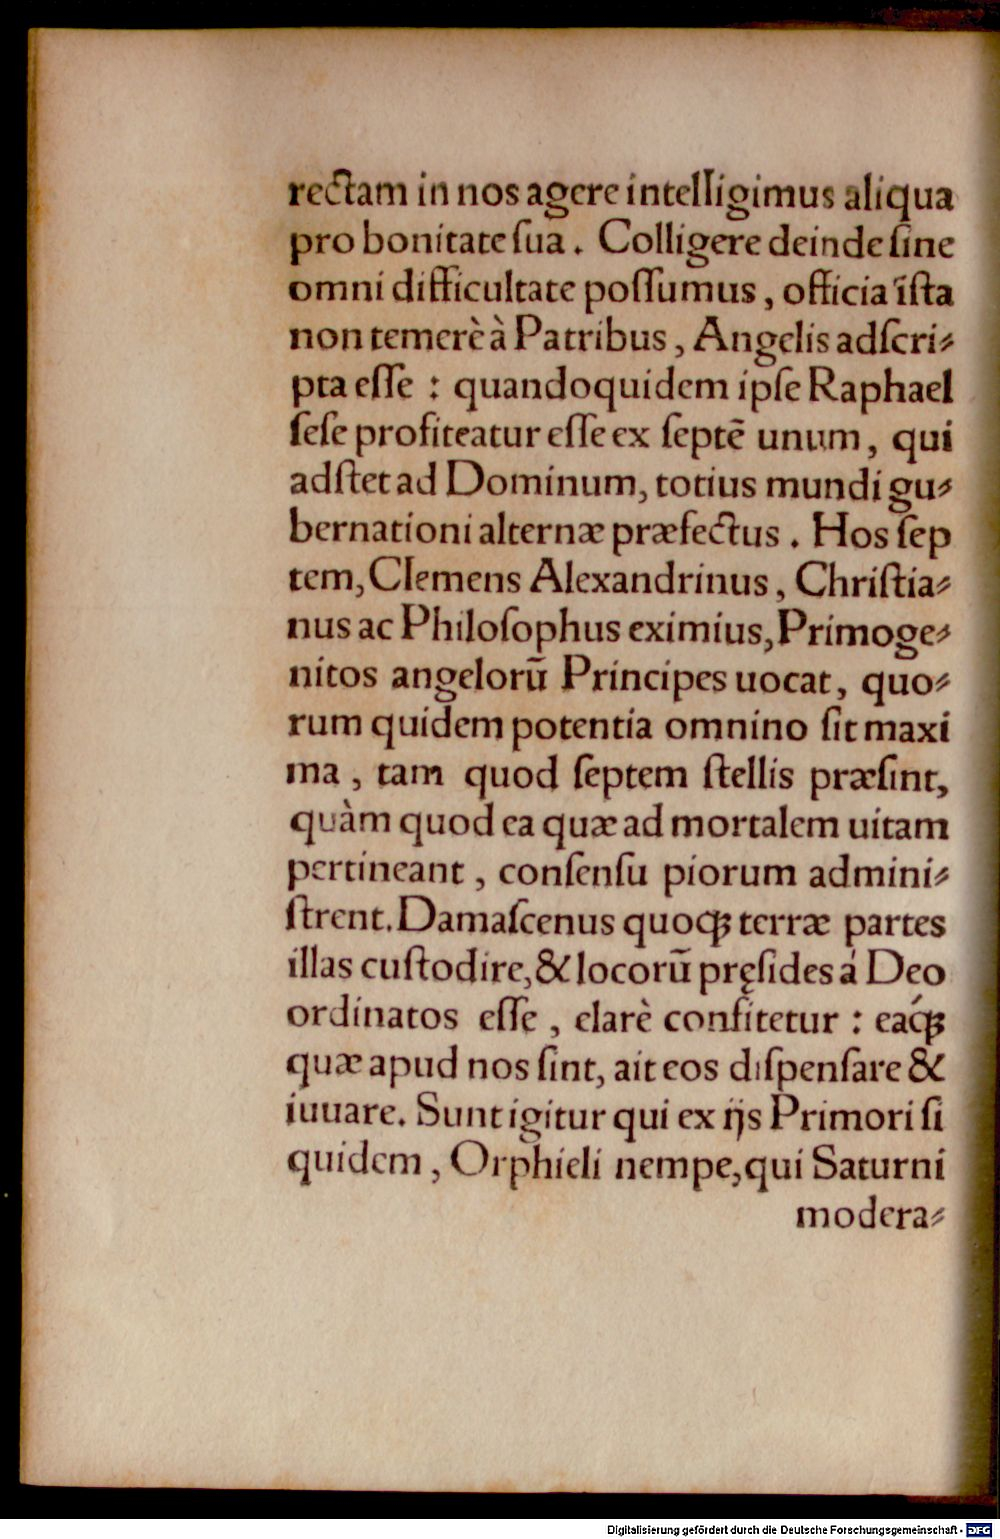 rectam in nos agere intelligimus aliqua
pro bonitate ſua. Colligere deinde ſine
omni difficultate poſſumus, officia iſta
non temerè à Patribus, Angelis adſcri⸗
pta eſſe : quandoquidem ipſe Raphael
ſeſe profiteatur eſſe ex ſeptē unum, qui
adſtet ad Dominum, totius mundi gu⸗
bernationi alternæ præfectus. Hos ſep
tem, Clemens Alexandrinus, Chriſtia⸗
nus ac Philoſophus eximius, Primoge⸗
nitos angelorū Principes uocat, quo⸗
rum quidem potentia omnino ſit maxi
ma, tam quod ſeptem ſtellis præſint,
quàm quod ea quæ ad mortalem uitam
pertineant, conſenſu piorum admini⸗
ſtrent. Damaſcenus quoqꝫ terræ partes
illas cuſtodire, & locorū pręſides á Deo
ordinatos eſſe, clarè confitetur : eáqꝫ
quæ apud nos ſint, ait eos diſpenſare &
iuuare. Sunt igitur qui ex ijs Primori ſi
quidem, Orphieli nempe, qui Saturni
modera⸗
Digitalisierung gefördert durch die Deutsche Forschungsgemeinschaft - DFG